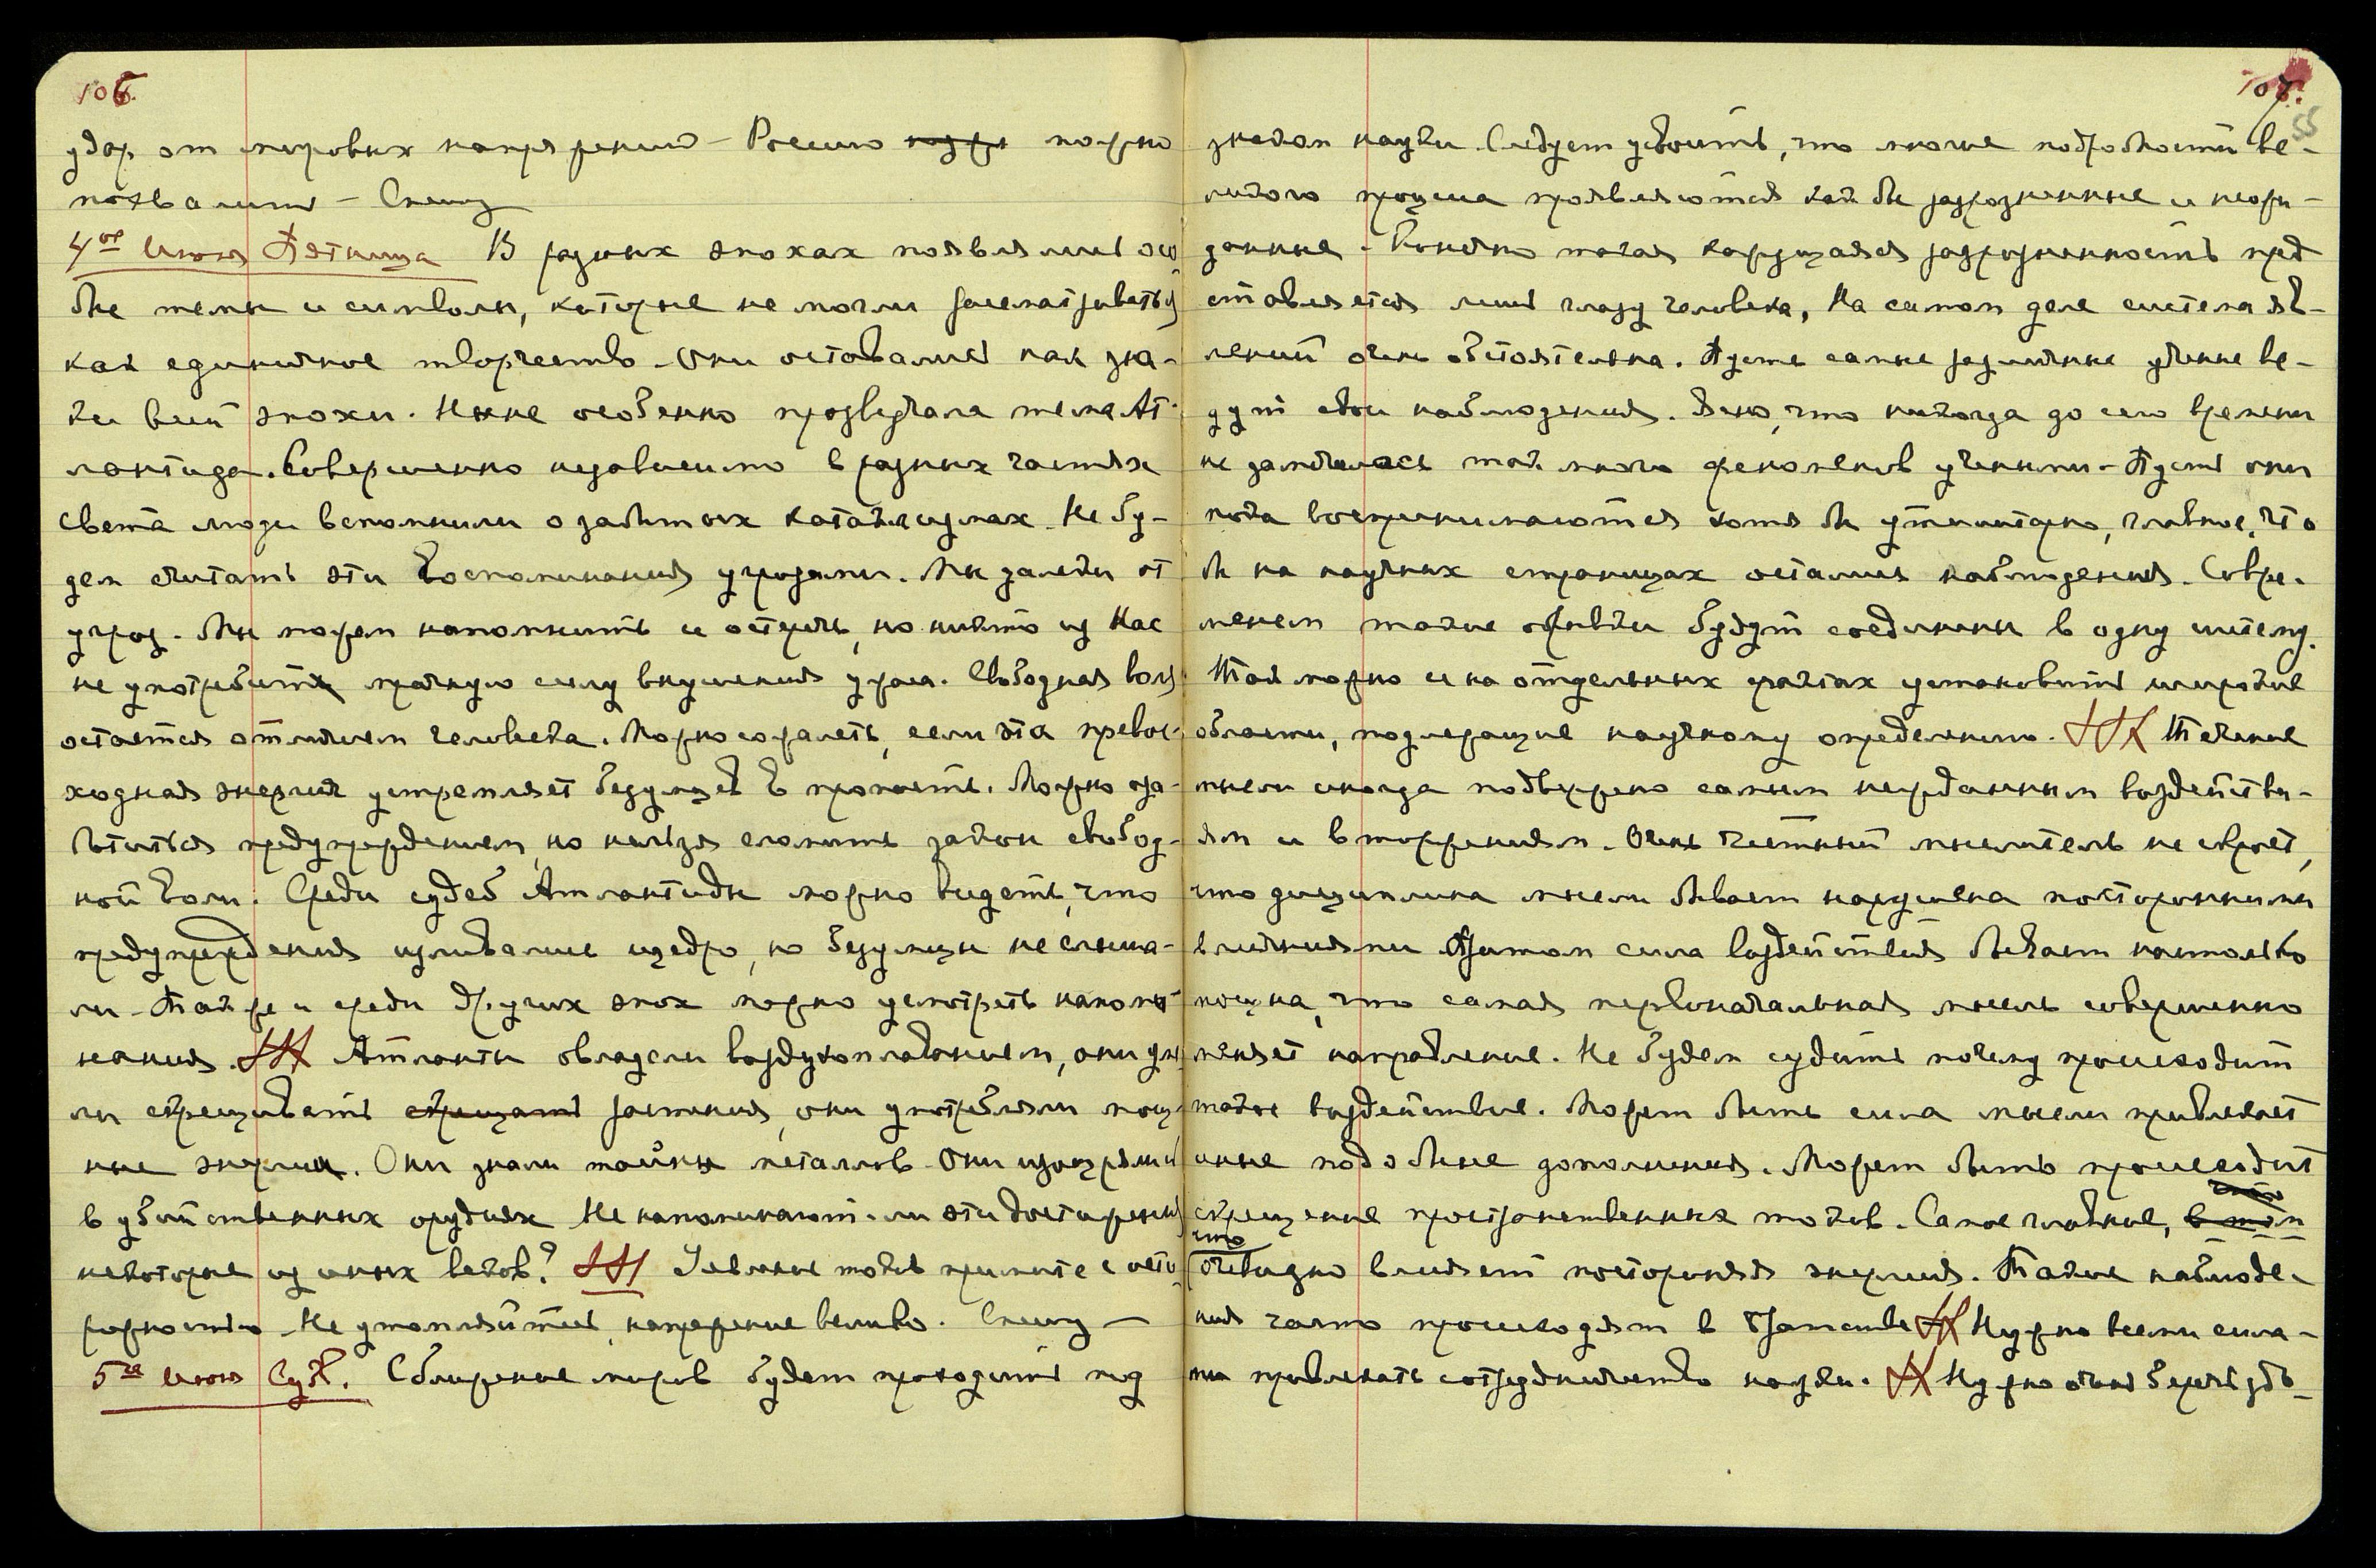 106.
удар от мировых напряжений – Россию можно
похвалить – Спешу
4ое Июня Пятница В разных эпохах появлялись осо
бые темы и символы, которые не могли рассматриваться
как единичное творчество – Они оставались как зна-
ки всей эпохи. Ныне особенно прозвучала тема Ат-
лантида. Совершенно независимо в разных частях
света люди вспомнили о забытых катаклизмах – Не бу-
дем считать эти воспоминания угрозами. Мы далеки от
угроз. Мы можем напомнить и остеречь, но никто из Нас
не употребит мрачную силу внушения ужаса. Свободная воля
остается отличием человека. Можно сожалеть, если эта превос-
ходная энергия устремляет безумцев в пропасть. Можно оза-
ботиться предупреждением, но нельзя сломить закон свобод-
ной воли. Среди судеб Атлантиды можно видеть, что
предупреждения изливались щедро, но безумцы не слыша-
ли – Так же и среди других эпох можно усмотреть напоми-
нания. Атланты овладели воздухоплаванием, они уме
ли скрещивать скрещать растения, они употребляли мощ-
ные энергии. Они знали тайны металлов – Они изощрялись
в убийственных орудиях Не напоминают ли эти достижения
некоторые из иных веков? Усвоение токов примите с осто
рожностью – Не утомляйтесь, напряжение велико. Спешу –
5ое Июня Суб. Сближение миров будет проходить под
107.
55
знаком науки. Следует усвоить, что многие подробности ве-
ликого процесса проявляются как бы разрозненные и неожи-
данные – Конечно такая кажущаяся разрозненность пред
ставляется лишь глазу человека, На самом деле система яв-
лений очень обстоятельна. Пусть самые различные ученые ве-
дут свои наблюдения. Ясно, что никогда до сего времени
не замечалась так много феноменов учеными – Пусть они
пока воспринимаются хотя бы утилитарно, главное, что
бы на научных страницах остались наблюдения. Совре-
менем такие отрывки будут соединены в одну систему.
Так можно и на отдельных фактах установить широкие
области, подлежащие научному определению. Течение
мысли иногда подвержено самым нежданным воздействи-
ям и вторжениям. Очень честный мыслитель не скроет,
что дисциплина мысли бывает нарушена посторонними
влияниями Притом сила воздействия бывает настолько
мощна, что самая первоначальная мысль совершенно
меняет направление. Не будем судить почему происходит
такое воздействие. Может быть сила мысли привлекает
иные подобные дополнения. Может быть происходит
скрещение пространственных токов. Самое главное,
что
очевидно влияет посторонняя энергия. Такие наблюде-
ния часто происходят в Братстве Нужно всеми сила-
ми привлекать сотрудничество науки. Нужно очень беречь здо-